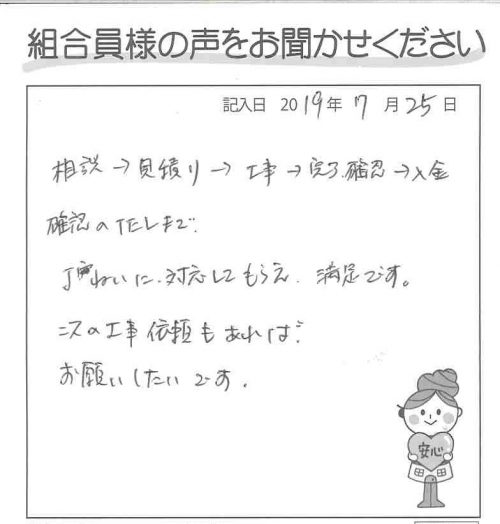 組合員様の声をお聞かせください
記入日 2019年 7月25日
相談→見積り→工事→完了確認→入金
確認のTELまで、
丁寧ねいに、対応してもらえ、満足です。
次の工事依頼もあれば、
お願いしたいです。
安心